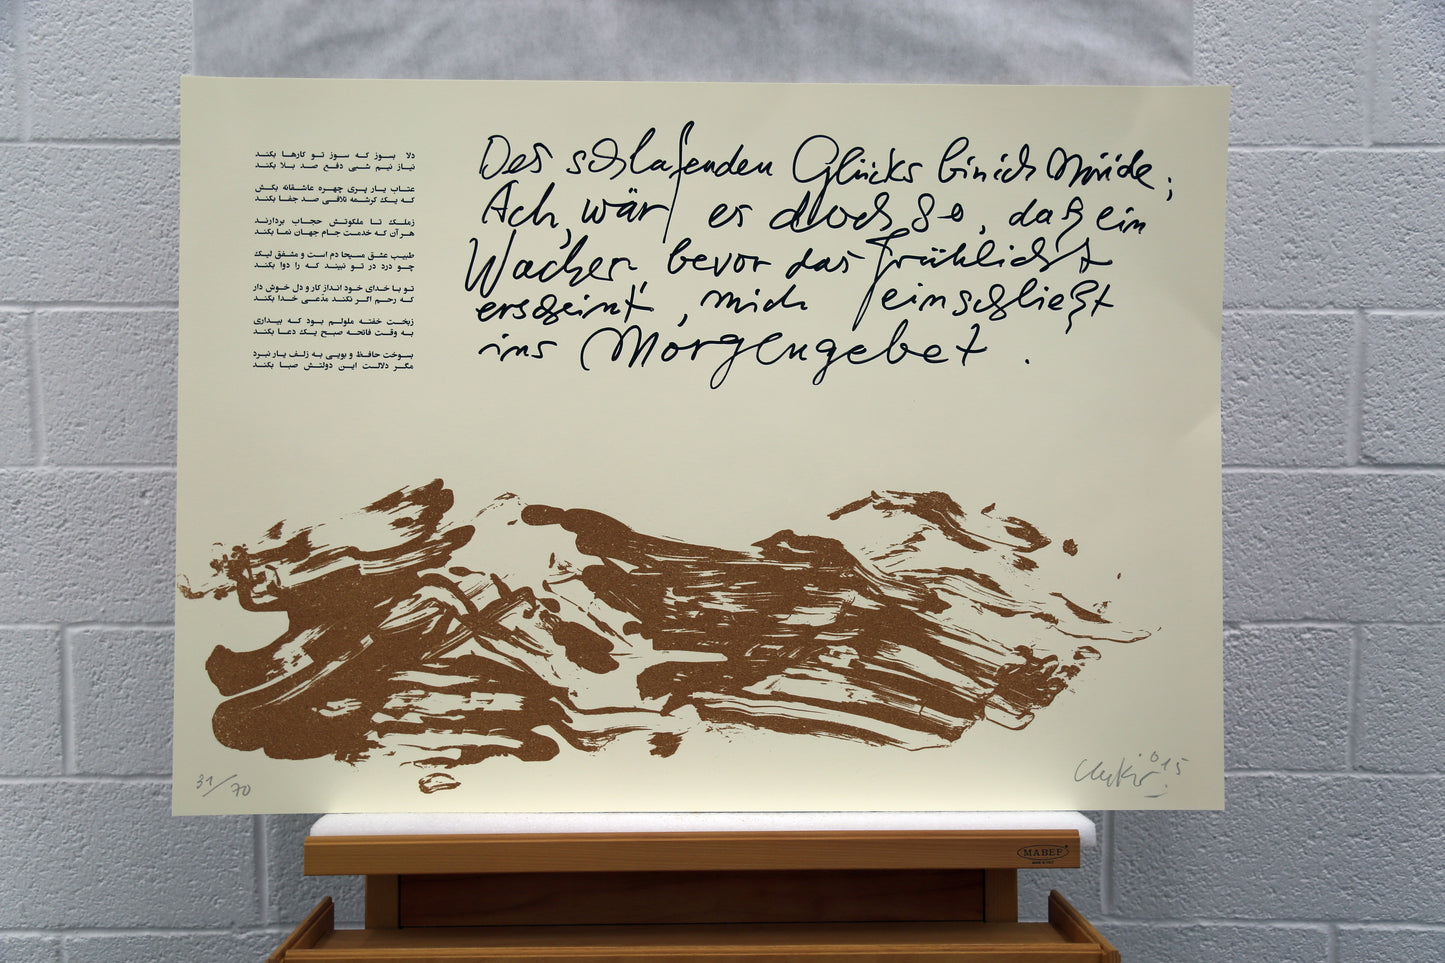 دلا بسوز که سوز تو کارها بکند
نیاز نیم شبی دفع صد بلا بکند
عتاب یار پری چهره عاشقانه بکش
که یک کرشمه تلافی صد جفا بکند
زملک تا ملکوتش حجاب بردارند
هر آن که خدمت جام جهان نما بکند
طبیب عشق مسیحا دم است و مشفق لیک
چو درد در تو نبیند که را دوا بکند
تو با خدای خود انداز کار و دل خوش دار
که رحم اگر نکند مدّعی خدا بکند
زبخت خفته ملولم بود که بیداری
به وقت فاتحه صبح یک دعا بکند
بسوخت حافظ و بویی به زلف یار نبرد
مگر دلالت این دولتش صبا بکند
Des schlafenden Glücks bin ich müde;
Ach, wär es doch so, daß ein
Wacher, bevor das Frühlicht
erscheint, mich einschließt
ins Morgengebet.
31/70
015
MABEF